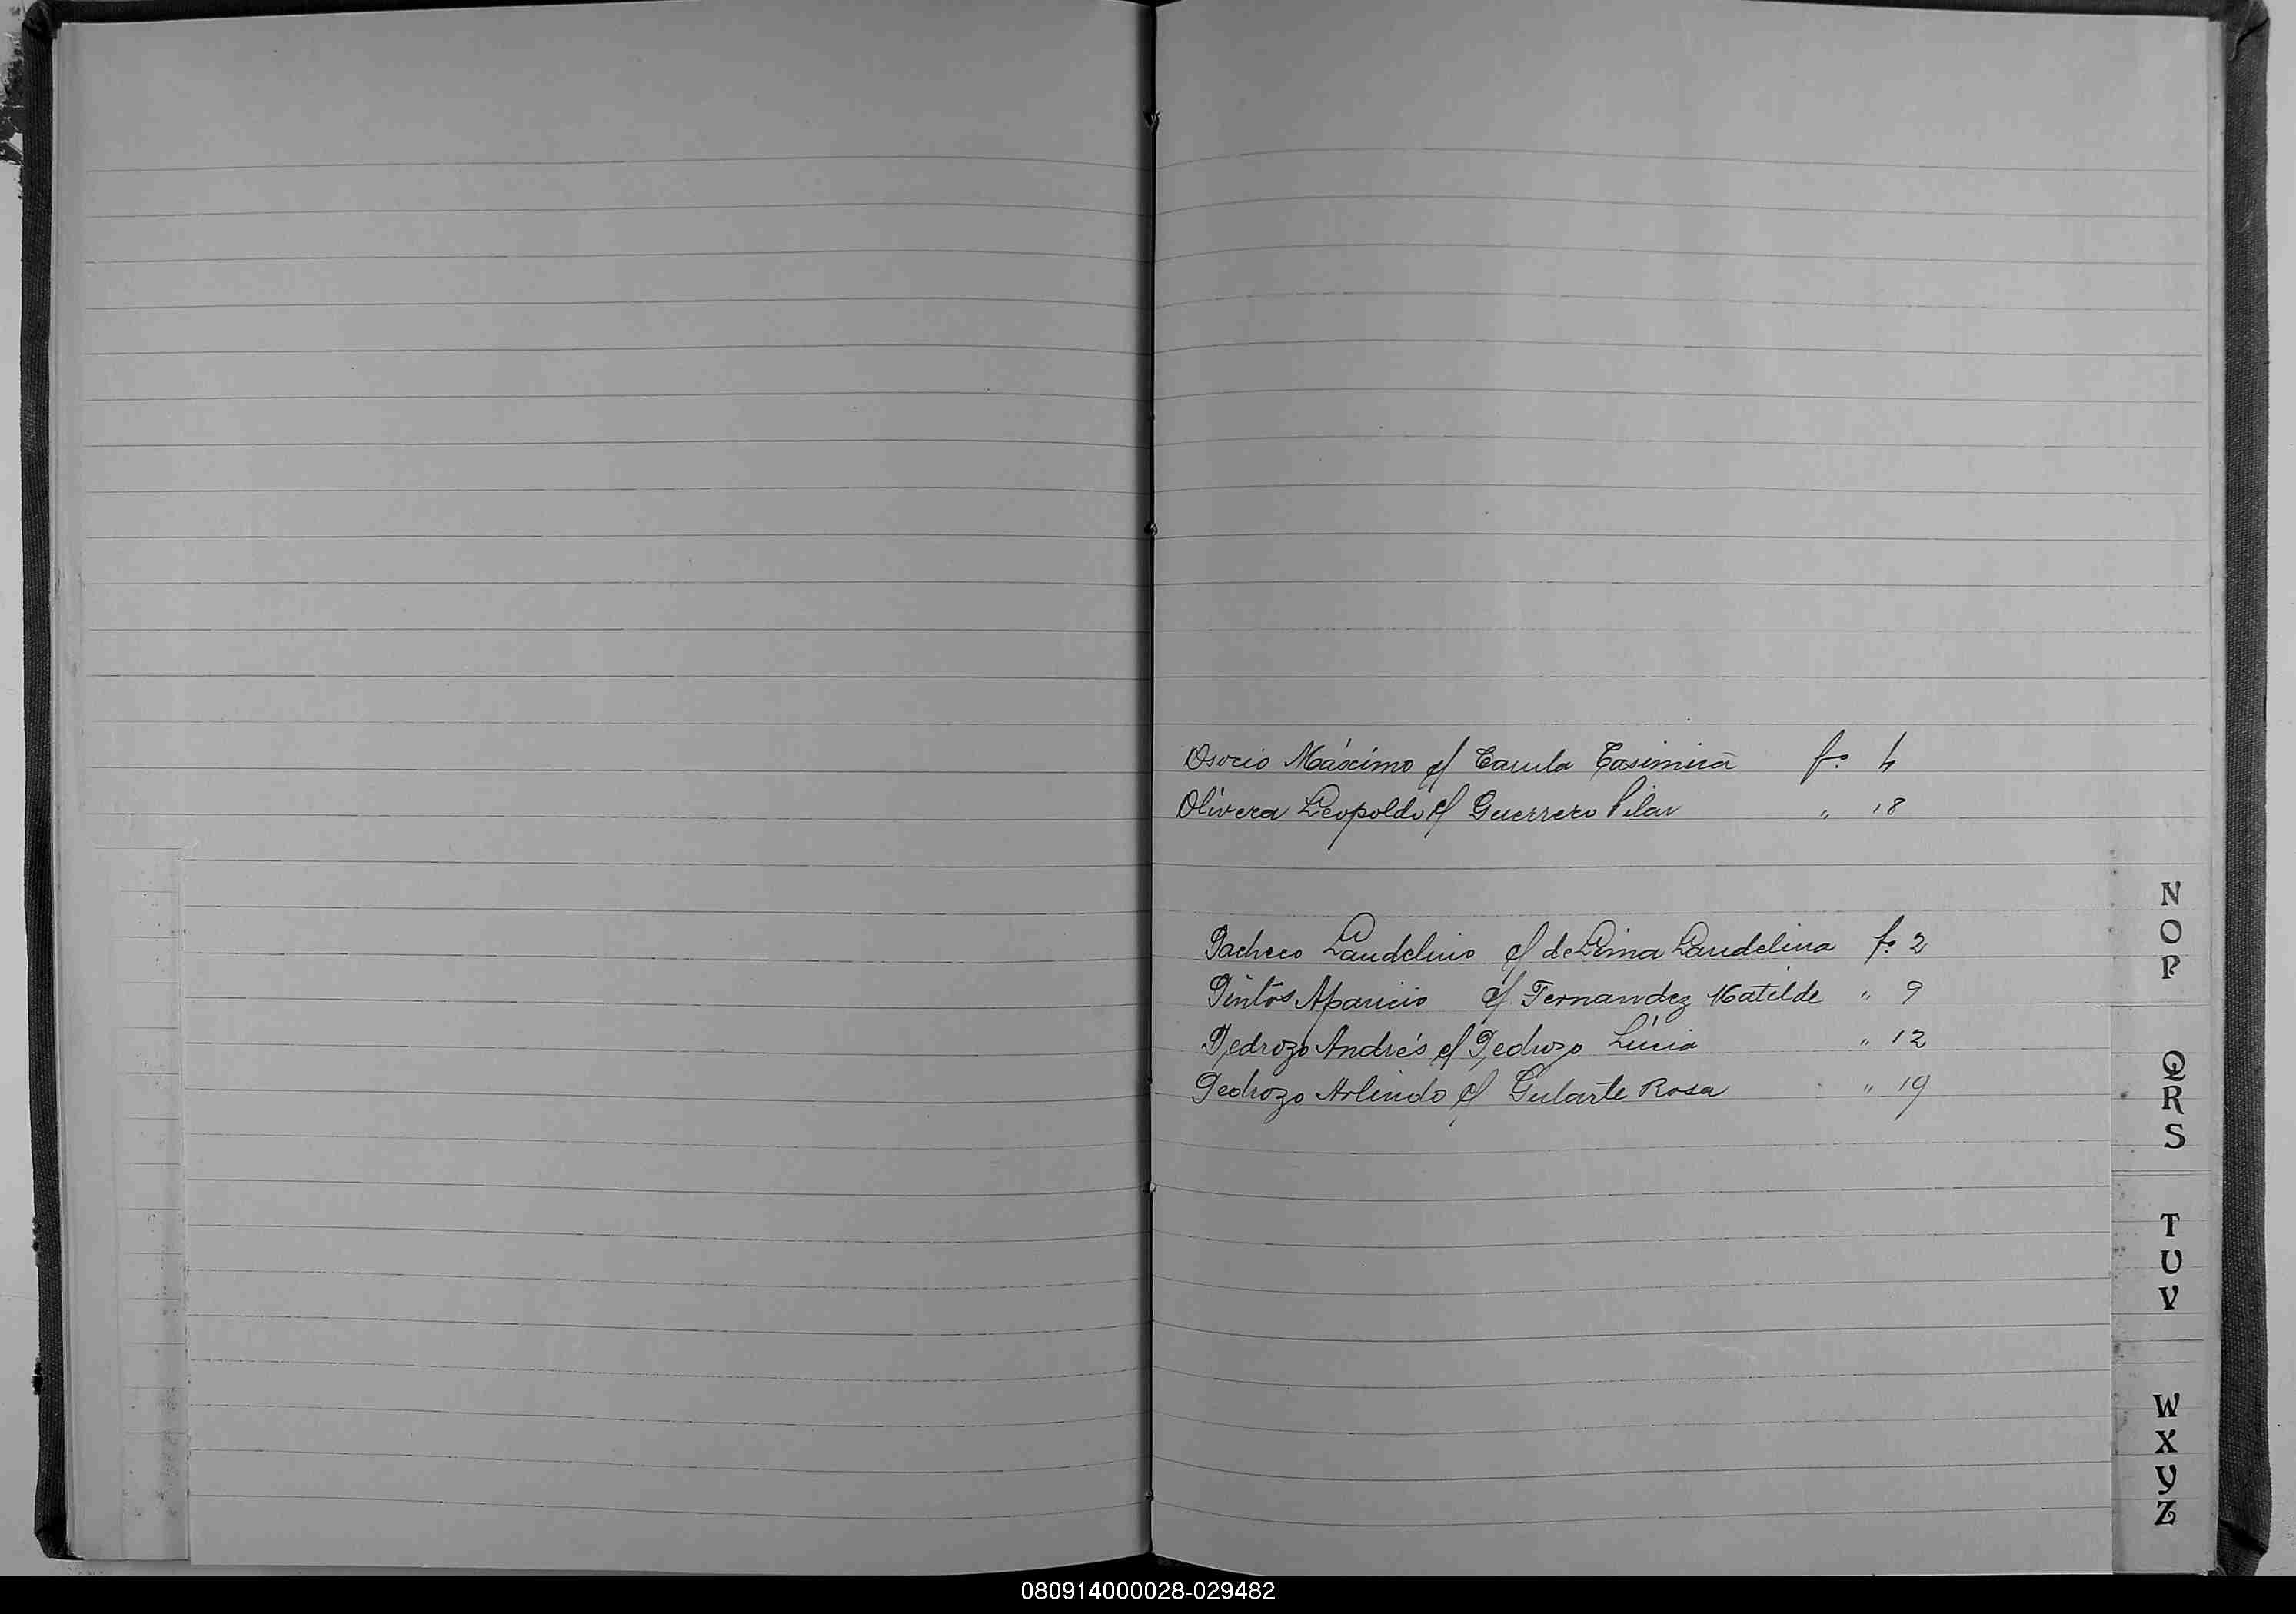 Osorio Máximo c/ Casula Casimira fo. 4
Olivera Leopoldo c/ Guerrero Pilar " 18
Pacheco Laudelino c/ de Lima Laudelina fo. 2
Pintos Aparicio c/ Fernandez Matilde " 9
Pedrozo Andrés c/ Pedrozo Lucía " 12
Pedrozo Arlindo c/ Gularte Rosa " 19
N
O
P
Q
R
S
T
U
V
W
X
Y
Z
080914000028-029482